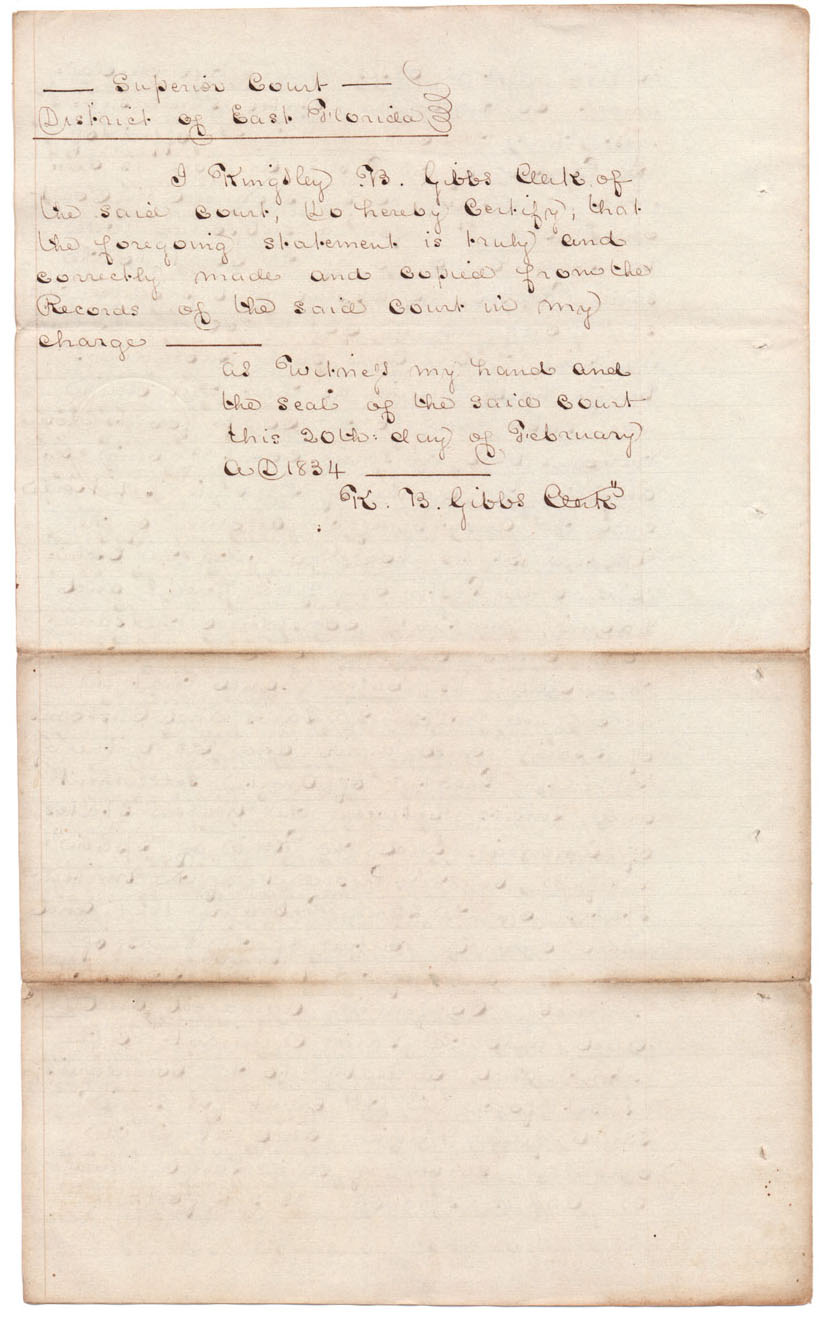 — Superior Court —
District of East Florida
I Kingsley B. Gibbs Clerk of
the said Court, Do hereby Certify, that
the foregoing statement is truly and
correctly made and copied from the
Records of the said Court in my
charge ———
As Witness my hand and
the seal of the said Court
this 20th: day of February
A D 1834 ———
K. B. Gibbs Clerk"